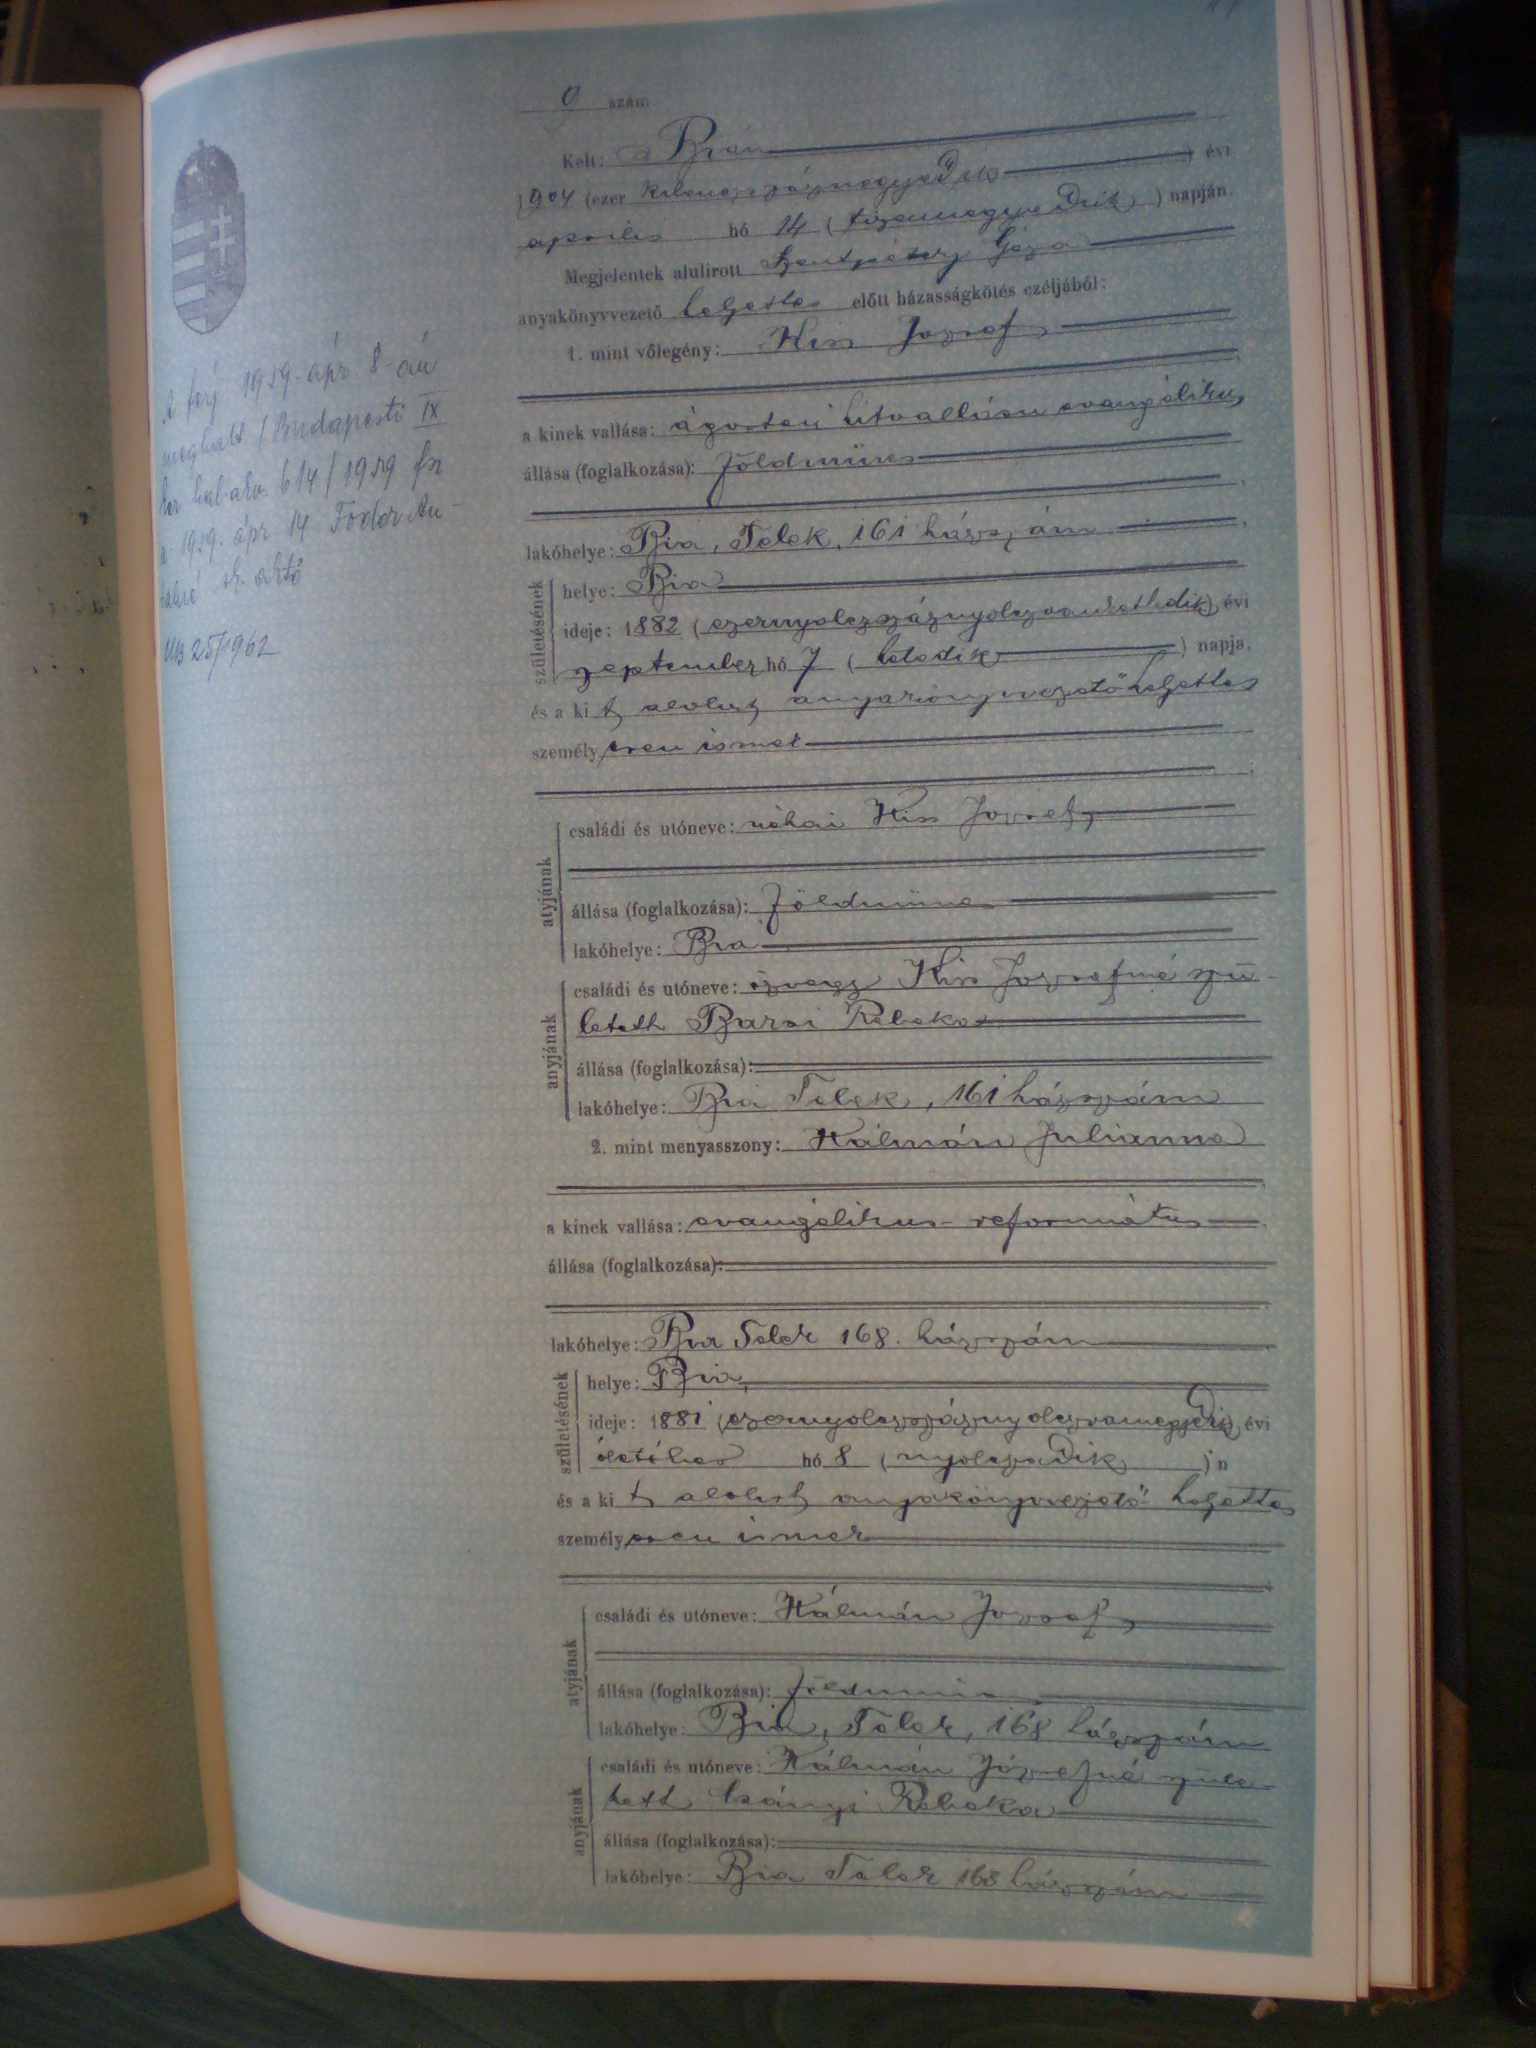 9 szám.
Kelt: Bián
1904 (ezer kilenczszáznegyedik) évi
április hó 14 (tizennegyedik) napján.
Megjelentek alulirott Szentpétery Géza
anyakönyvvezető helyettes előtt házasságkötés czéljából:
1. mint vőlegény: Kiss József
a kinek vallása: ágostai hitvallású evangélikus,
állása (foglalkozása): földműves
lakóhelye: Bia, Telek, 161 házszám
születésének
helye: Bia
ideje: 1882 (ezernyolczszáznyolczvankettedik) évi
szeptember hó 7 (hetedik) napja,
és a kit alulirt anyakönyvvezető helyettes
személyesen ismer
atyjának
családi és utóneve: néhai Kiss József,
állása (foglalkozása): földműves
lakóhelye: Bia
anyjának
családi és utóneve: özvegy Kiss Józsefné szü-
letett Barsi Rebeka
állása (foglalkozása):
lakóhelye: Bia Telek, 161 házszám
2. mint menyasszony: Kálmán Julianna
a kinek vallása: evangélikus-református
állása (foglalkozása):
lakóhelye: Bia Telek 168. házszám
születésének
helye: Bia,
ideje: 1881 (ezernyolczszáznyolczvanegyedik) évi
október hó 8 (nyolczadik) n
és a kit alulirt anyakönyvvezető helyettes
személyesen ismer
atyjának
családi és utóneve: Kálmán József,
állása (foglalkozása): földműves
lakóhelye: Bia, Telek, 168 házszám
anyjának
családi és utóneve: Kálmán Józsefné szüle-
tett Csányi Rebeka
állása (foglalkozása):
lakóhelye: Bia Telek 168 házszám
A férj 1959. ápr. 8-án
meghalt (Budapesti IX
ker hal. akv. 614/1959 fsz
1959. ápr. 14. Fodor An-
talné sk. akvő
UB 25/1962